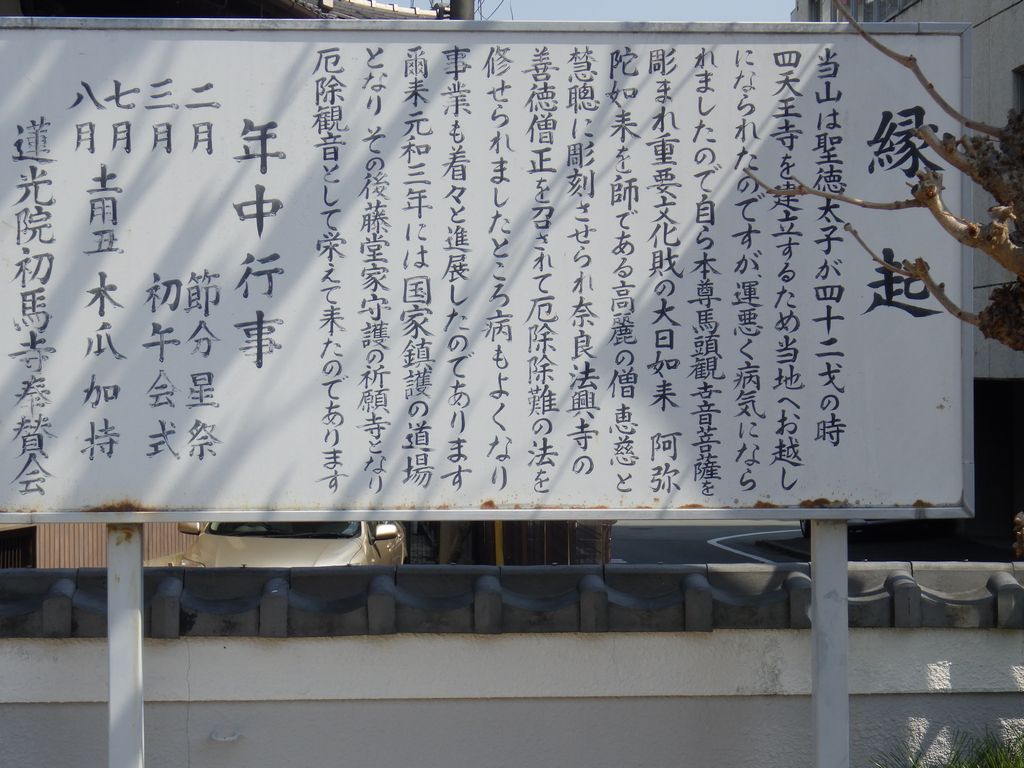 縁起
当山は聖徳太子が四十二才の時
四天王寺を建立するため当地へお越し
になられたのですが、運悪く病気になら
れましたので自ら本尊馬頭觀世音菩薩を
彫まれ重要文化財の大日如来 阿弥
陀如来を師である高麗の僧 恵慈と
慧聰に彫刻させられ奈良法興寺の
善徳僧正を召されて厄除除難の法を
修せられましたところ病もよくなり
事業も着々と進展したのであります
爾来元和三年には国家鎮護の道場
となり その後藤堂家守護の祈願寺となり
厄除觀音として栄えて来たのであります
年中行事
二月 節分星祭
三月 初午会式
七月 土用丑
八月 木瓜加持
蓮光院初馬寺奉賛会